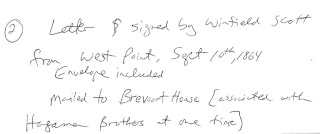 ② Letter & signed by Winfield Scott
from West Point, Sept 10th, 1864
Envelope included
Mailed to Brevoort House [associated with
Hageman Brothers at one time]